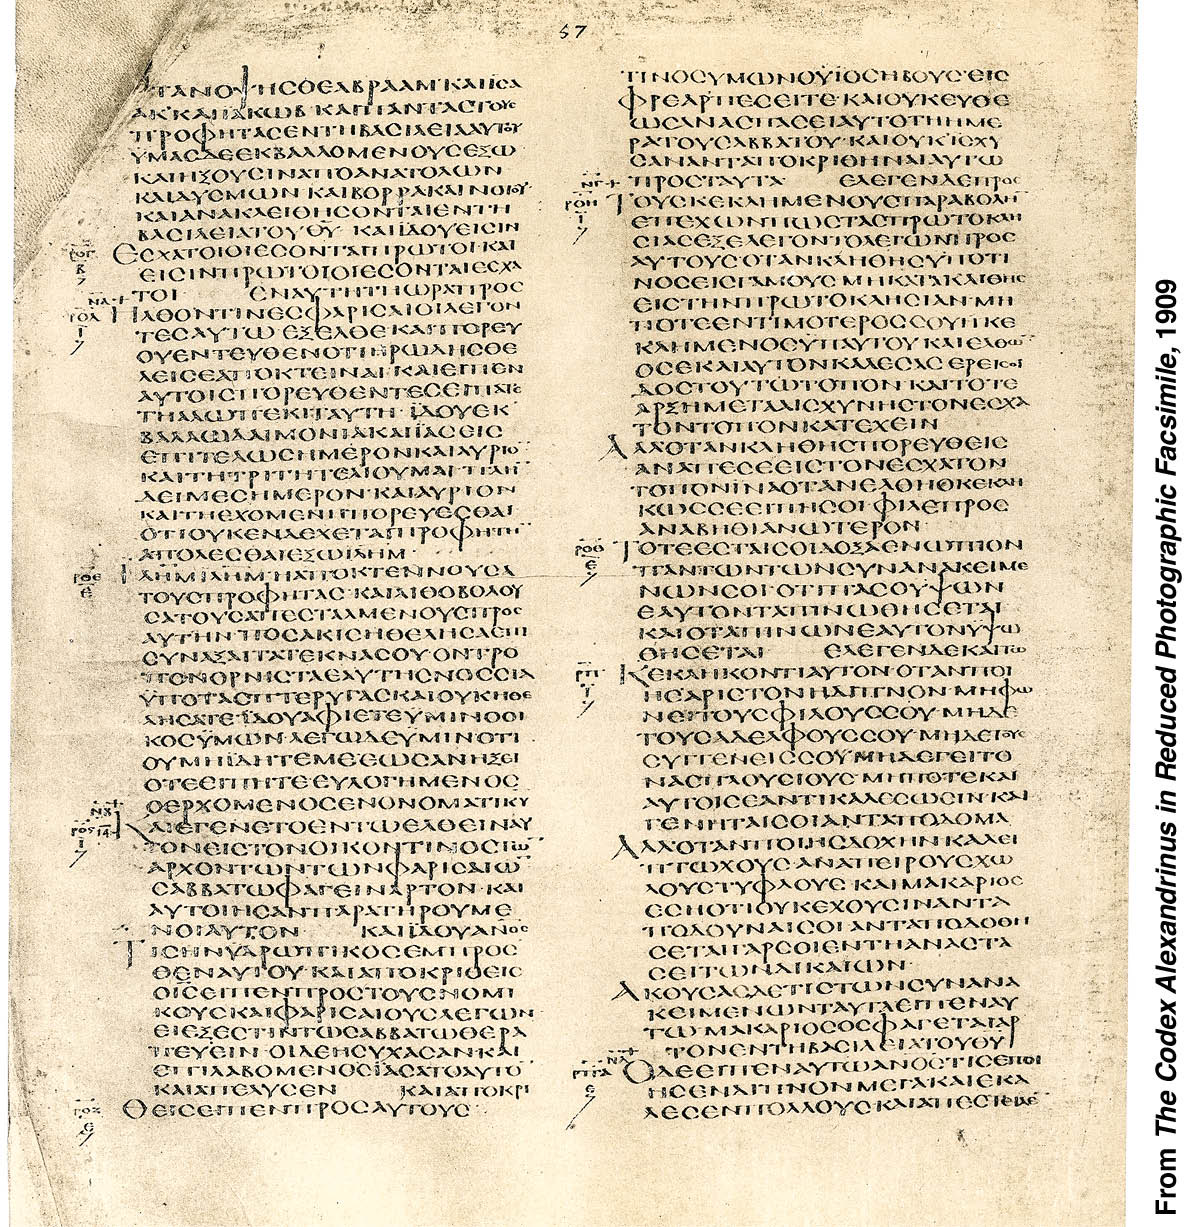 57
ΤΑΝΟΨΗΣΘΕΑΒΡΑΑΜ·ΚΑΙΙΣΑ
ΑΚ·ΚΑΙΙΑΚΩΒ·ΚΑΙΠΑΝΤΑΣΤΟΥΣ
ΠΡΟΦΗΤΑΣΕΝΤΗΒΑΣΙΛΕΙΑΑΥΤΟΥ
ΥΜΑΣΔΕΕΚΒΑΛΛΟΜΕΝΟΥΣΕΞΩ·
ΚΑΙΗΞΟΥΣΙΝΑΠΟΑΝΑΤΟΛΩΝ
ΚΑΙΔΥΣΜΩΝ·ΚΑΙΒΟΡΡΑΚΑΙΝΟΤΟΥ·
ΚΑΙΑΝΑΚΛΕΙΘΗΣΟΝΤΑΙΕΝΤΗ
ΒΑΣΙΛΕΙΑΤΟΥΘΥ· ΚΑΙΙΔΟΥΕΙΣΙΝ
ΕΣΧΑΤΟΙΟΙΕΣΟΝΤΑΙΠΡΩΤΟΙ·ΚΑΙ
ΕΙΣΙΝΠΡΩΤΟΙΟΙΕΣΟΝΤΑΙΕΣΧΑ
ΤΟΙ ΕΝΑΥΤΗΤΗΩΡΑΠΡΟΣ
ΗΛΘΟΝΤΙΝΕΣΦΑΡΙΣΑΙΟΙΛΕΓΟΝ
ΤΕΣΑΥΤΩ·ΕΞΕΛΘΕΚΑΙΠΟΡΕΥ
ΟΥΕΝΤΕΥΘΕΝΟΤΙΗΡΩΔΗΣΘΕ
ΛΕΙΣΕΑΠΟΚΤΕΙΝΑΙ·ΚΑΙΕΙΠΕΝ
ΑΥΤΟΙΣΠΟΡΕΥΘΕΝΤΕΣΕΙΠΑΤΕ
ΤΗΑΛΩΠΕΚΙΤΑΥΤΗ· ΙΔΟΥΕΚ
ΒΑΛΛΩΔΑΙΜΟΝΙΑΚΑΙΙΑΣΕΙΣ
ΕΠΙΤΕΛΩΣΗΜΕΡΟΝΚΑΙΑΥΡΙΟ
ΚΑΙΤΗΤΡΙΤΗΤΕΛΙΟΥΜΑΙ·ΠΛΗ
ΔΕΙΜΕΣΗΜΕΡΟΝ·ΚΑΙΑΥΡΙΟΝ
ΚΑΙΤΗΕΧΟΜΕΝΗΠΟΡΕΥΕΣΘΑΙ
ΟΤΙΟΥΚΕΝΔΕΧΕΤΑΙΠΡΟΦΗΤΗ
ΑΠΟΛΕΣΘΑΙΕΞΩΙΛΗΜ·
ΙΛΗΜΙΛΗΜ·ΗΑΠΟΚΤΕΝΝΟΥΣΑ
ΤΟΥΣΠΡΟΦΗΤΑΣ·ΚΑΙΛΙΘΟΒΟΛΟΥ
ΣΑΤΟΥΣΑΠΕΣΤΑΛΜΕΝΟΥΣΠΡΟΣ
ΑΥΤΗΝ·ΠΟΣΑΚΙΣΗΘΕΛΗΣΑΕΠΙ
ΣΥΝΑΞΑΙΤΑΤΕΚΝΑΣΟΥ·ΟΝΤΡΟ
ΠΟΝΟΡΝΙΣΤΑΕΑΥΤΗΣΝΟΣΣΙΑ
ΥΠΟΤΑΣΠΤΕΡΥΓΑΣΚΑΙΟΥΚΗΘΕ
ΛΗΣΑΤΕ·ΙΔΟΥΑΦΙΕΤΕΥΜΙΝΟΟΙ
ΚΟΣΥΜΩΝ·ΛΕΓΩΔΕΥΜΙΝΟΤΙ
ΟΥΜΗΙΔΗΤΕΜΕΕΩΣΑΝΗΞΕΙ
ΟΤΕΕΙΠΗΤΕΕΥΛΟΓΗΜΕΝΟΣ
ΟΕΡΧΟΜΕΝΟΣΕΝΟΝΟΜΑΤΙΚΥ
ΚΑΙΕΓΕΝΕΤΟΕΝΤΩΕΛΘΕΙΝΑΥ
ΤΟΝΕΙΣΤΟΝΟΙΚΟΝΤΙΝΟΣΤΩ
ΑΡΧΟΝΤΩΝΤΩΝΦΑΡΙΣΑΙΩ
ΣΑΒΒΑΤΩΦΑΓΕΙΝΑΡΤΟΝ·ΚΑΙ
ΑΥΤΟΙΗΣΑΝΠΑΡΑΤΗΡΟΥΜΕ
ΝΟΙΑΥΤΟΝ ΚΑΙΙΔΟΥΑΝΟΣ
ΤΙΣΗΝΥΔΡΩΠΙΚΟΣΕΜΠΡΟΣ
ΘΕΝΑΥΤΟΥ·ΚΑΙΑΠΟΚΡΙΘΕΙΣ
ΟΙΣΕΙΠΕΝΠΡΟΣΤΟΥΣΝΟΜΙ
ΚΟΥΣΚΑΙΦΑΡΙΣΑΙΟΥΣΛΕΓΩΝ·
ΕΙΕΞΕΣΤΙΝΤΩΣΑΒΒΑΤΩΘΕΡΑ
ΠΕΥΕΙΝ·ΟΙΔΕΗΣΥΧΑΣΑΝ·ΚΑΙ
ΕΠΙΛΑΒΟΜΕΝΟΣΙΑΣΑΤΟΑΥΤΟ
ΚΑΙΑΠΕΛΥΣΕΝ ΚΑΙΑΠΟΚΡΙ
ΘΕΙΣΕΙΠΕΝΠΡΟΣΑΥΤΟΥΣ·
ΤΙΝΟΣΥΜΩΝΟΥΪΟΣΗΒΟΥΣ·ΕΙΣ
ΦΡΕΑΡΠΕΣΕΙΤΕ·ΚΑΙΟΥΚΕΥΘΕ
ΩΣΑΝΑΣΠΑΣΕΙΑΥΤΟΤΗΗΜΕ
ΡΑΤΟΥΣΑΒΒΑΤΟΥ·ΚΑΙΟΥΚΙΣΧΥ
ΣΑΝΑΝΤΑΠΟΚΡΙΘΗΝΑΙΑΥΤΩ
ΠΡΟΣΤΑΥΤΑ ΕΛΕΓΕΝΔΕΠΡΟΣ
ΤΟΥΣΚΕΚΛΗΜΕΝΟΥΣΠΑΡΑΒΟΛΗ
ΕΠΕΧΩΝΠΩΣΤΑΣΠΡΩΤΟΚΛΙ
ΣΙΑΣΕΞΕΛΕΓΟΝΤΟΛΕΓΩΝΠΡΟΣ
ΑΥΤΟΥΣ·ΟΤΑΝΚΛΗΘΗΣΥΠΟΤΙ
ΝΟΣΕΙΣΓΑΜΟΥΣ·ΜΗΚΑΤΑΚΛΙΘΗΣ
ΕΙΣΤΗΝΠΡΩΤΟΚΛΗΣΙΑΝ·ΜΗ
ΠΟΤΕΕΝΤΙΜΟΤΕΡΟΣΣΟΥΗΚΕ
ΚΛΗΜΕΝΟΣΥΠΑΥΤΟΥ·ΚΑΙΕΛΘΩ
ΟΣΕΚΑΙΑΥΤΟΝΚΑΛΕΣΑΣ·ΕΡΕΙΣΟΙ
ΔΟΣΤΟΥΤΩΤΟΠΟΝ·ΚΑΙΤΟΤΕ
ΑΡΞΗΜΕΤΑΑΙΣΧΥΝΗΣΤΟΝΕΣΧΑ
ΤΟΝΤΟΠΟΝΚΑΤΕΧΕΙΝ
ΑΛΛΟΤΑΝΚΛΗΘΗΣΠΟΡΕΥΘΕΙΣ
ΑΝΑΠΕΣΕΕΙΣΤΟΝΕΣΧΑΤΟΝ
ΤΟΠΟΝΙΝΑΟΤΑΝΕΛΘΗΟΚΕΚΛΗ
ΚΩΣΣΕΕΙΠΗΣΟΙ·ΦΙΛΕΠΡΟΣ
ΑΝΑΒΗΘΙΑΝΩΤΕΡΟΝ·
ΤΟΤΕΕΣΤΑΙΣΟΙΔΟΞΑΕΝΩΠΙΟΝ
ΠΑΝΤΩΝΤΩΝΣΥΝΑΝΑΚΕΙΜΕ
ΝΩΝΣΟΙ·ΟΤΙΠΑΣΟΥΨΩΝ
ΕΑΥΤΟΝΤΑΠΙΝΩΘΗΣΕΤΑΙ
ΚΑΙΟΤΑΠΙΝΩΝΕΑΥΤΟΝΥΨΩ
ΘΗΣΕΤΑΙ ΕΛΕΓΕΝΔΕΚΑΙΤΩ
ΚΕΚΛΗΚΟΝΤΙΑΥΤΟΝ·ΟΤΑΝΠΟΙ
ΗΣΑΡΙΣΤΟΝΗΔΙΠΝΟΝ·ΜΗΦΩ
ΝΕΙΤΟΥΣΦΙΛΟΥΣΣΟΥ·ΜΗΔΕ
ΤΟΥΣΑΔΕΛΦΟΥΣΣΟΥ·ΜΗΔΕΤΟΥΣ
ΣΥΓΓΕΝΕΙΣΣΟΥ·ΜΗΔΕΓΕΙΤΟ
ΝΑΣΠΛΟΥΣΙΟΥΣ·ΜΗΠΟΤΕΚΑΙ
ΑΥΤΟΙΣΕΑΝΤΙΚΑΛΕΣΩΣΙΝ·ΚΑΙ
ΓΕΝΗΤΑΙΣΟΙΑΝΤΑΠΟΔΟΜΑ
ΑΛΛΟΤΑΝΠΟΙΗΣΔΟΧΗΝΚΑΛΕΙ
ΠΤΩΧΟΥΣ·ΑΝΑΠΕΙΡΟΥΣΧΩ
ΛΟΥΣΤΥΦΛΟΥΣ·ΚΑΙΜΑΚΑΡΙΟΣ
ΕΣΗΟΤΙΟΥΚΕΧΟΥΣΙΝΑΝΤΑ
ΠΟΔΟΥΝΑΙΣΟΙ·ΑΝΤΑΠΟΔΟΘΗ
ΣΕΤΑΙΓΑΡΣΟΙΕΝΤΗΑΝΑΣΤΑ
ΣΕΙΤΩΝΔΙΚΑΙΩΝ·
ΑΚΟΥΣΑΣΔΕΤΙΣΤΩΝΣΥΝΑΝΑ
ΚΕΙΜΕΝΩΝΤΑΥΤΑΕΙΠΕΝΑΥ
ΤΩ·ΜΑΚΑΡΙΟΣΟΣΦΑΓΕΤΑΙΑΡ
ΤΟΝΕΝΤΗΒΑΣΙΛΕΙΑΤΟΥΘΥ
ΟΔΕΕΙΠΕΝΑΥΤΩΑΝΟΣΤΙΣΕΠΟΙ
ΗΣΕΝΔΙΠΝΟΝΜΕΓΑ·ΚΑΙΕΚΑ
ΛΕΣΕΝΠΟΛΛΟΥΣ·ΚΑΙΑΠΕΣΤΕΙΛΕ
From The Codex Alexandrinus in Reduced Photographic Facsimile, 1909